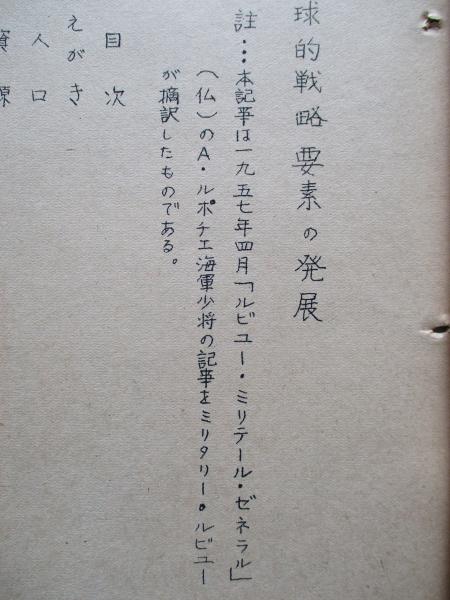 球的戦略要素の発展
註…本記事は一九五七年四月「ルビュー・ミリテール・ゼネラル」
(仏)のA・ルポチエ海軍少将の記事をミリタリー・ルビュー
が摘訳したものである。
目次
えがき
人口
資源